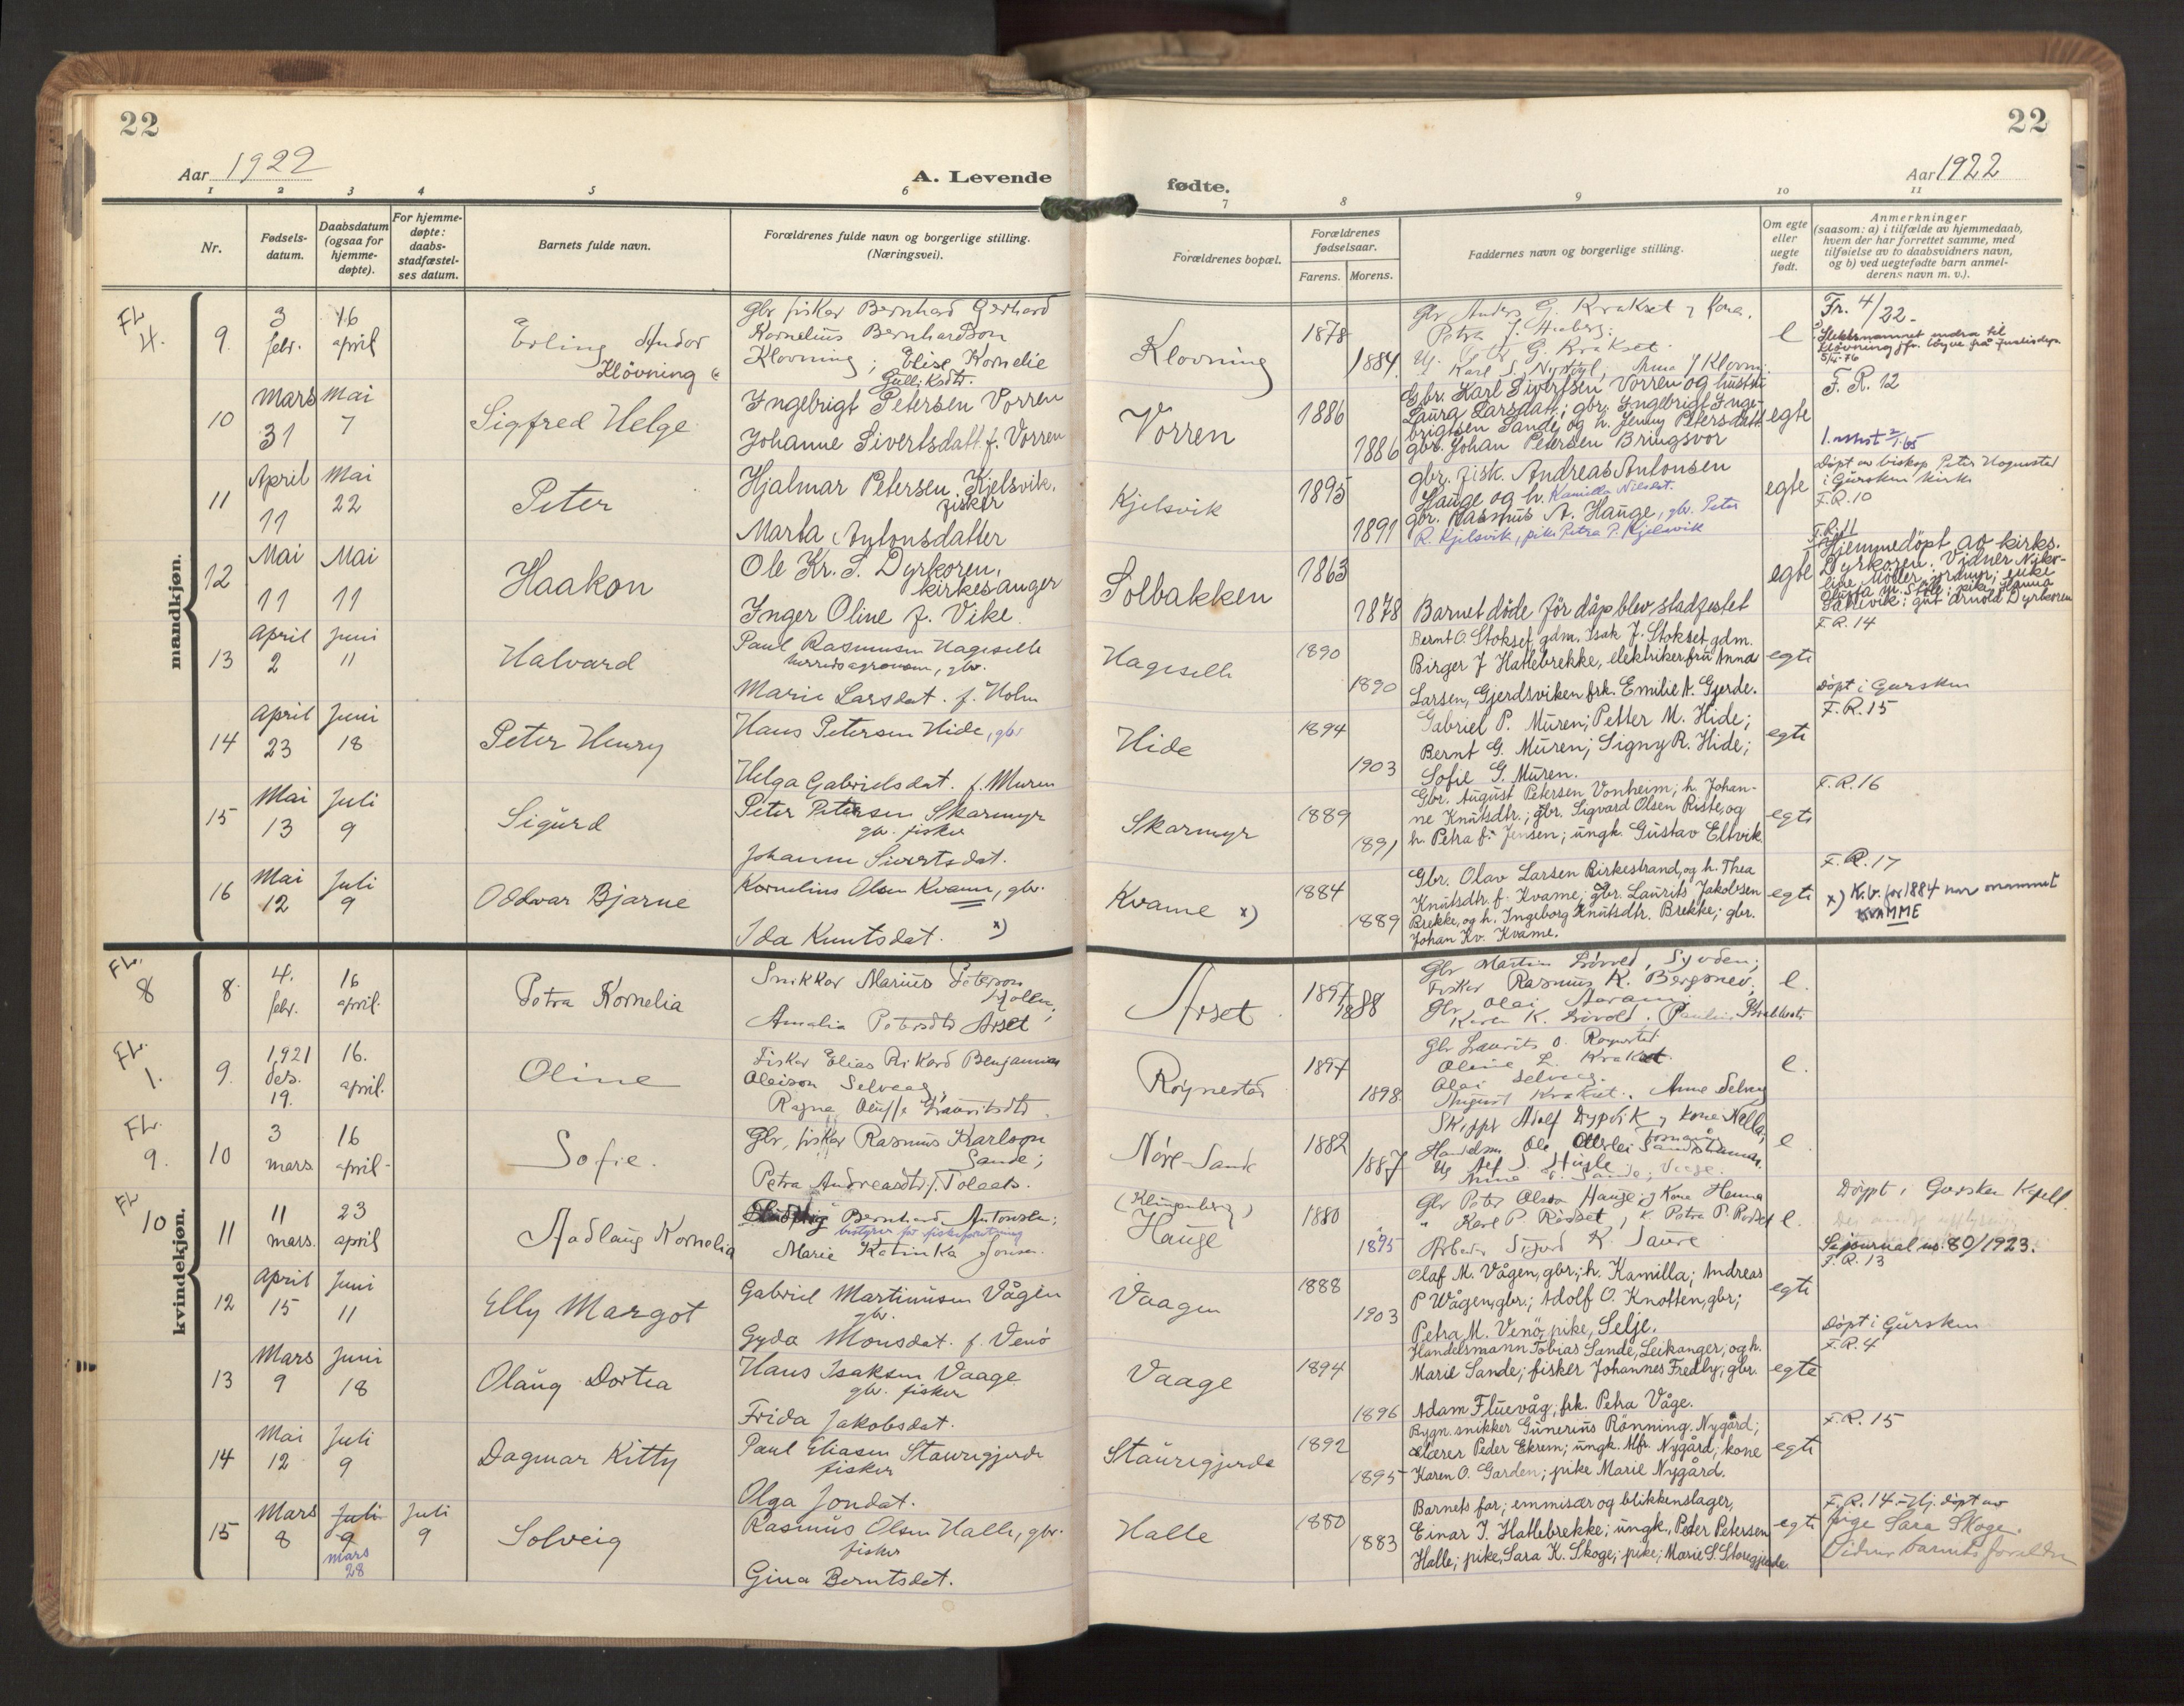 22
22
Aar 1922
A. Levende
fødte.
Aar 1922
1 2 3 4 5 6 7 8 9 10 11
Nr.
Fødsels-
datum.
Daabsdatum
(ogsaa for
hjemme-
døpte).
For hjemme-
døpte:
daabs-
stadfæstel-
ses datum.
Barnets fulde navn.
Forældrenes fulde navn og borgerlige stilling.
(Næringsvei).
Forældrenes bopæl.
Forældrenes
fødselsaar.
Farens. Morens.
Faddernes navn og borgerlige stilling.
Om egte
eller
uegte
født.
Anmerkninger
(saasom: a) i tilfælde av hjemmedaab,
hvem der har forrettet samme, med
tilføielse av to daabsvidners navn,
og b) ved uegtefødte barn anmel-
derens navn m. v.).
mandkjøn.
FL
4.
9.
3
febr.
16
april
Erling Andor
Klövning
Gbr fisker Bernhard Gerhard
Kornelius Bernhardson
Klovning; Elise Kornelie
Gulliksdtr.
Klovning
1878
1884
Gbr Anders G. Krakset og Kona,
Petra J.
G. Krakset.
e
Fr. 4/22.
Slektsnamnet endra til
Klövning jfr. löyve frå Justisdep.
10
Mars
31
Mai
7
Sigfred Helge
Ingebrigt Petersen Vorren
Johanne Sivertsdatt. f. Vorren
Vorren
1886
1886
Gbr. Karl Sivertsen Vorren og hustru
Laura Larsdatt; gbr. Ingebrigt Inge-
brigtsen Sande og h. Jenny Petersdatt.
gbr. Johan Petersen Bringsvor
egte
F. R. 12
11
April
11
Mai
22
Peter
Hjalmar Petersen Kjelsvik,
fisker
Marta Antonsdatter
Kjelsvik
1895
1891
gbr. fisk. Andreas Antonsen
Hauge og h. Kamilla Nilsdat.
gbr. Rasmus A. Hauge, gbr. Peter
R. Kjelsvik, pike Petra P. Kjelsvik
egte
Döpt av biskop Peter Hognestad
i Gursken kirke
F.R. 10
12
Mai
11
Mai
11
Haakon
Ole Kr. S. Dyrkoren,
kirkesanger
Inger Oline f. Vike
Solbakken
1863
1878
Barnet döde för dåp blev stadfestet
egte
F.R. 11
Hjemmedöpt av kirks.
Dyrkoren. Vidner Niko-
line Moller, jordmor; enke
pike Hanna
Sætrevik; gut Arnold Dyrkoren
13
April
2
Juni
11
Halvard
Paul Rasmusen Hageselle
herredsagronom, gbr.
Marie Larsdat. f. Holm
Hageselle
1890
1890
Bernt O. Stokset, gdm. Isak J. Stokset gdm.
Birger J Hatlebrekke, elektriker, fru Anna
Larsen, Gjerdsviken frk. Emilie A. Gjerde.
egte
F.R. 14
14
April
23
Juni
18
Peter Henry
Hans Petersen Hide, gbr
Helga Gabrielsdat. f. Muren
Hide
1894
1903
Gabriel P. Muren; Petter M. Hide;
Bernt G. Muren; Signy R. Hide;
Sofie G. Muren.
egte
Döpt i Gursken
F.R. 15
15
Mai
13
Juli
9
Sigurd
Peter Petersen Skarmyr
gbr. fisker
Johanne Sivertsdat.
Skarmyr
1889
1891
Gbr. August Petersen Vonheim; h. Johan-
ne Knutsdtr.; gbr. Sigvard Olsen Riste, og
h. Petra f. Jensen; ungk. Gustav Eltvik
egte
F.R. 16
16
Mai
12
Juli
9
Oddvar Bjarne
Kornelius Olsen Kvame, gbr.
Ida Knutsdat. x)
Kvame x)
1884
1889
Gbr. Olav Larsen Birkestrand, og h. Thea
Knutsdtr. f. Kvame; gbr. Laurits Jakobsen
Brekke, og h. Ingeborg Knutsdtr. Brekke; gbr.
Johan Kv. Kvame.
egte
F.R. 17
x) K.b. for 1884 har navnet
KVAMME
kvindekjøn.
FL.
8
8.
4.
febr.
16
april.
Petra Kornelia
Snikkar Marius Peterson
Amalia Petersdtr Arset
Arset
1897
1888
Gbr Martin
Fisker Rasmus K. Bergsnev,
Gbr Olai
e.
FL.
1.
9.
1921
des.
19.
16.
april.
Oline
Fisker Elias Rikard Benjamin
Oleison Selvaag,
Ragna Oluffe Lauritsdtr.
Røynestad
1897
1898
Gbr Laurits O. Røynestad
Oline L. Krakset.
Olai Selvaag.
August Krakset. Anne Selvaag
e.
FL.
9.
10
3
mars
16
april-
Sofie.
Gbr, fisker Rasmus Karlson
Sande;
Petra Andreasdtr f. Tolaas.
Nore-Sande
1882
1887
Skippr Adolf Dypvik og kone Kella;
Handelsm Ole
e
FL
10
11
11
mars.
23
april
Aadlaug Kornelia
Bernhard Antonsen;
bestyrer for fiskeforretning
Marie Katinka Jonsen.
(Klungenberg)
Hauge
1880
1895
Gbr Peter Olson Hauge og Kona Hanna
" Karl P. Rosset, k. Petra P. Rosset
Arbeider Sigurd K. Saure
e.
Døypt i Gursken Kapell.
Se journal nr. 80/1923.
12
April
15
Juni
11
Elly Margot
Gabriel Martinusen Vågen
gbr.
Gyda Monsdat. f. Venö
Vaagen
1888
1903
Olaf M. Vågen, gbr.; h. Kamilla; Andreas
P Wågen, gbr.; Adolf O. Knotten, gbr;
Petra M. Venö, pike, Selje.
egte
F.R. 13
13
Mars
9
Juni
18
Olaug Dortea
Hans Isaksen Vaage
gbr. fisker
Frida Jakobsdat.
Vaage
1894
1896
Handelsmann Tobias Sande, Leikanger, og h.
Marie Sande; fisker Johannes Fredly; gbr.
Adam Fluevåg, frk. Petra Våge.
egte
Döpt i Gursken
F.R. 4
14
Mai
12
Juli
9
Dagmar Kitty
Paul Eliasen Staurigjerde
fisker
Olga Jondat.
Staurigjerde
1892
1895
Bygn. snikker Gunerius Rönning, Nygård;
lærer Peder Ekrem; ungk. Alfr. Nygård; kone
Karen O. Garden; pike Marie Nygård.
egte
F.R. 15
15
Mars
8
Juli
9
mars
28
Juli
9
Solveig
Rasmus Olsen Halle, gbr.
fisker
Gina Berntsdat.
Halle
1880
1883
Barnets far; emmisær og blikkenslager,
Einar J. Hatlebrekke; ungk., Peder Petersen
Halle; pike, Sara K. Skoge; pike; Marie S. Storegjerde
egte
F.R. 14 - Hj. döpt av
pige Sara Skoge.
Vidner barnets foreldre